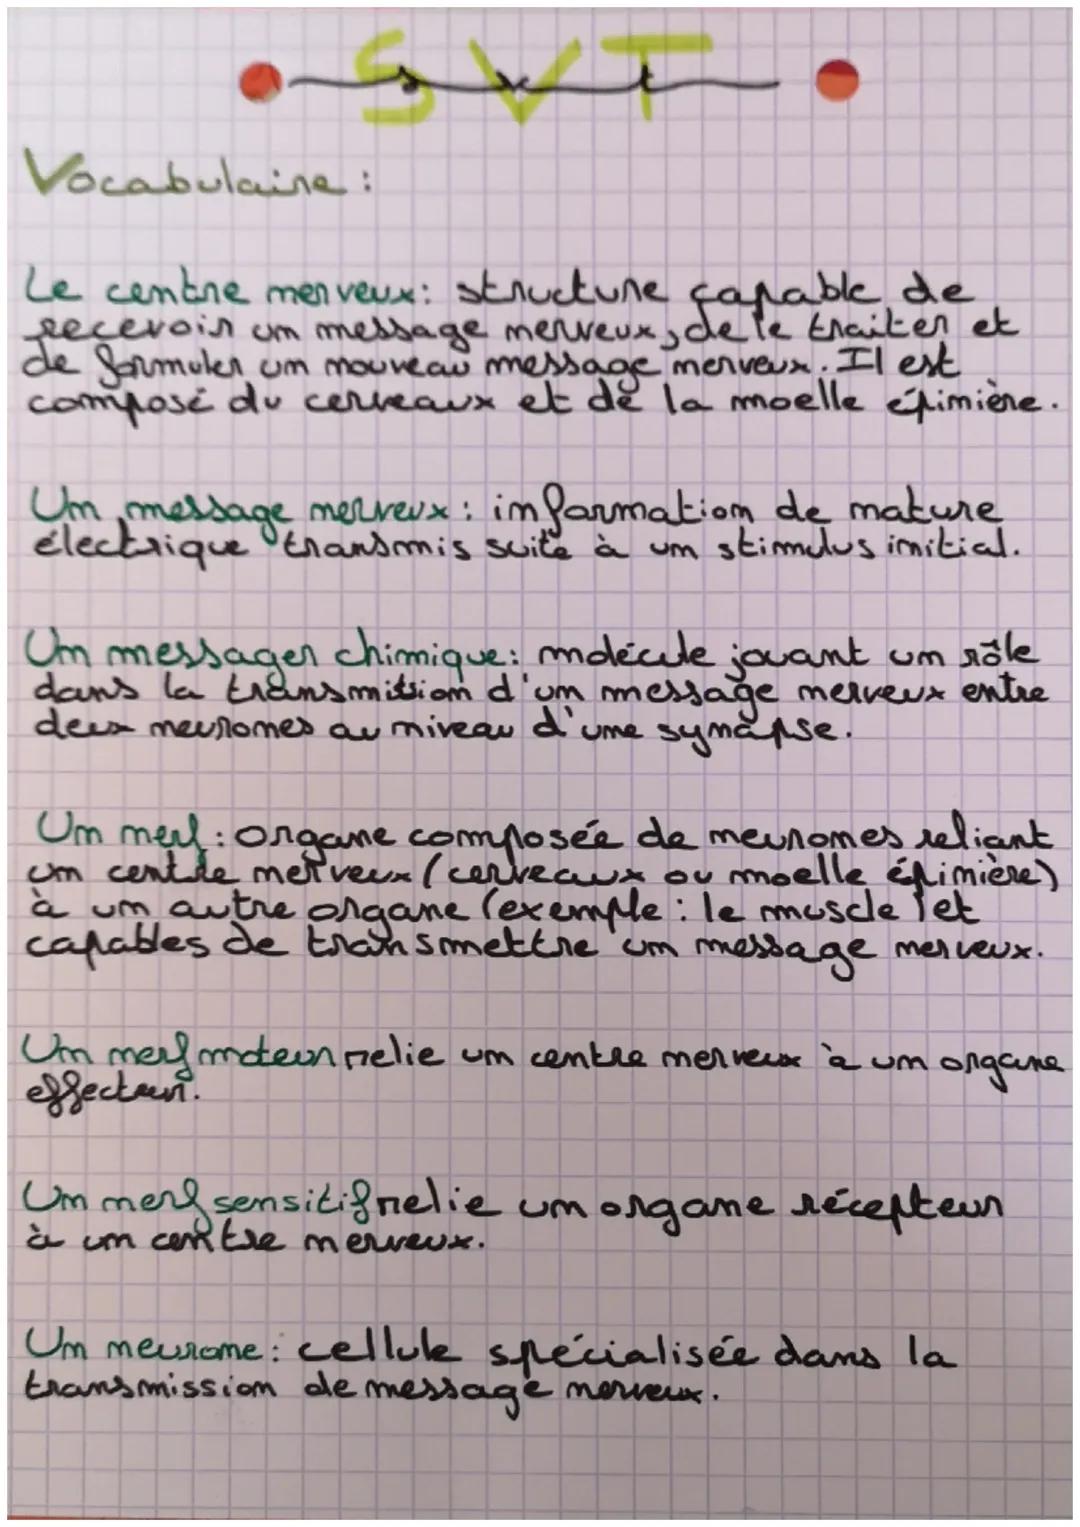 SVT
Vocabulaire :
Le centre nerveux : structure capable de
recevoir un message nerveux, de le traiter et
de formuler un nouveau message nerveux. Il est
composé du cerveaux et de la moelle épinière.
Un message nerveux : information de nature
électrique transmis suite à un stimulus initial.
Un messager chimique : molécule jouant un rôle
dans la transmission d'un message nerveux entre
deux neurones au niveau d'une synapse.
Un nerf : organe composée de neurones reliant
un centre nerveux (cerveaux ou moelle épinière)
à un autre organe (exemple : le muscle) et
capables de transmettre un message nerveux.
Un nerf moteur relie un centre nerveux à un organe
effecteur.
Un nerf sensitif relie un organe récepteur
à un centre nerveux.
Un neurone : cellule spécialisée dans la
transmission de message nerveux.